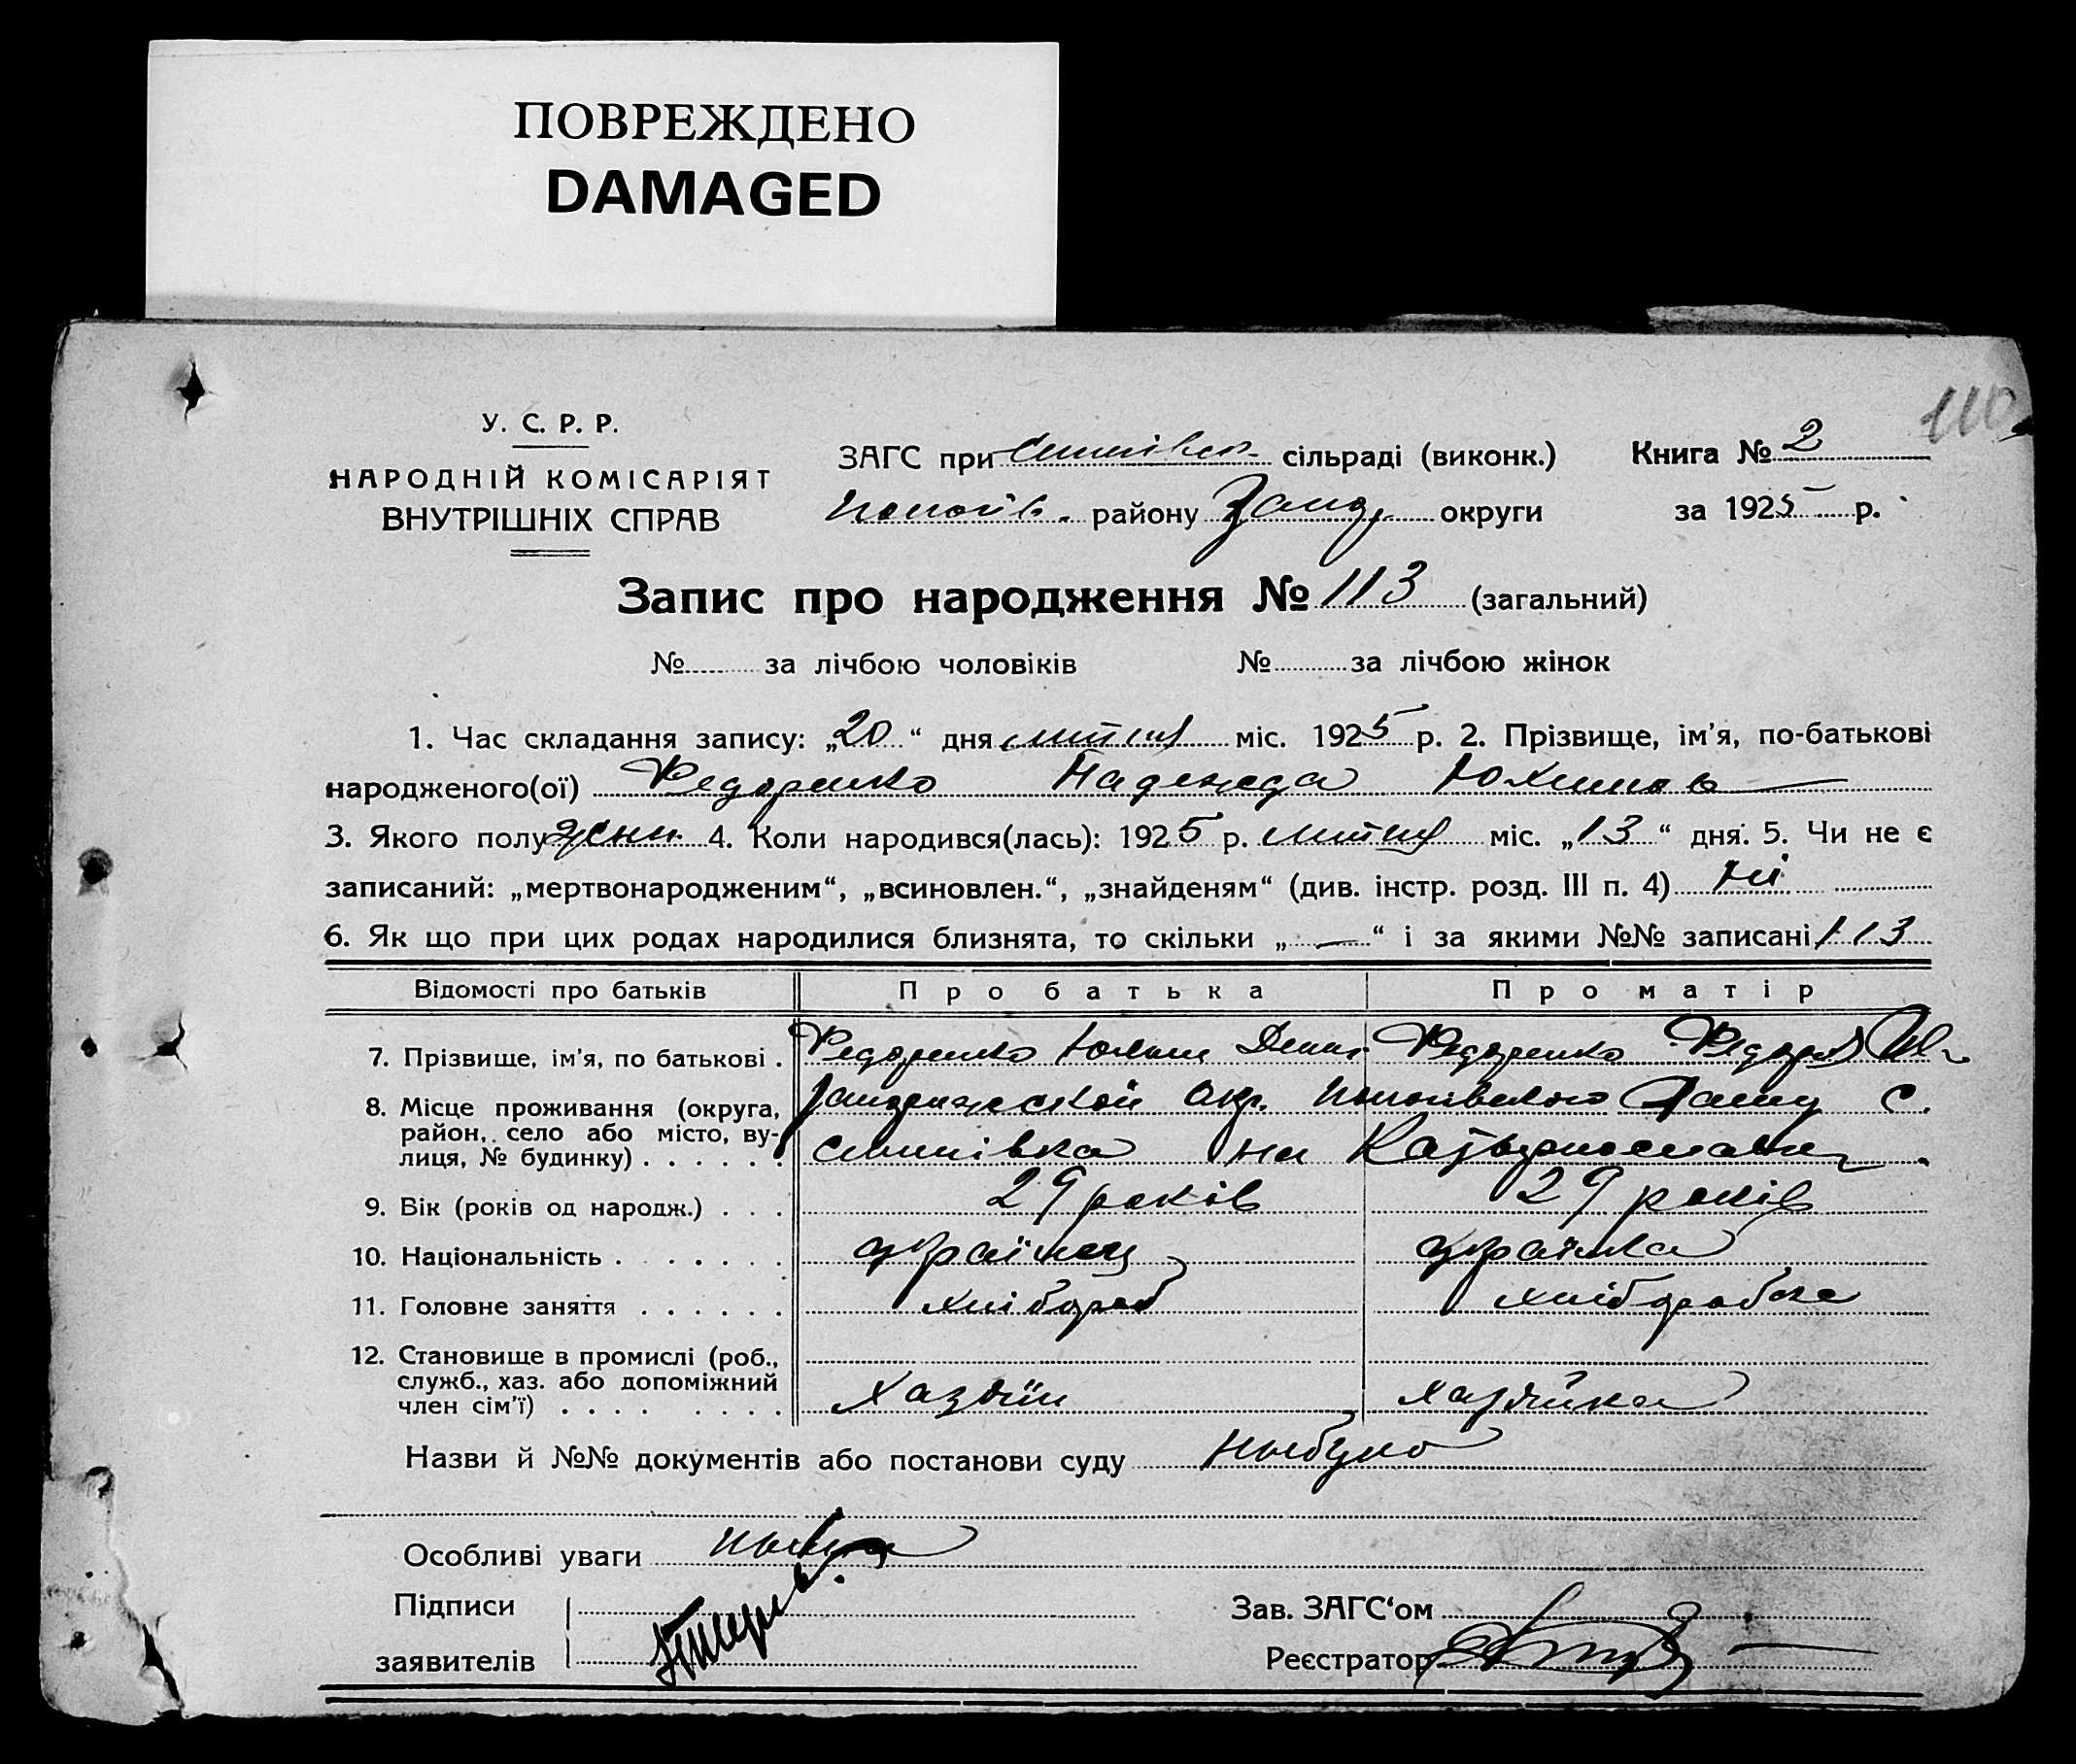 ПОВРЕЖДЕНО
DAMAGED
110
У. С. Р. Р.
НАРОДНІЙ КОМІСАРІЯТ
ВНУТРІШНІХ СПРАВ
ЗАГС при сільраді (виконк.) Книга № 2
району округи за 1925 р.
Запис про народження № 113 (загальний)
№ за лічбою чоловіків № за лічбою жінок
1. Час складання запису: „20“ дня міс. 1925 р. 2. Прізвище, ім'я, по-батькові
народженого(ої) Федоренко Надежда Юхимов
3. Якого полу жен. 4. Коли народився(лась): 1925 р. міс. „13“ дня. 5. Чи не є
записаний: „мертвонародженим“, „всиновлен.“, „знайденям“ (див. інстр. розд. III п. 4) ні
6. Як що при цих родах народилися близнята, то скільки „—“ і за якими №№ записані 113
Відомості про батьків Про батька Про матір
7. Прізвище, ім'я, по батькові . Федоренко Юхим Федоренко
8. Місце проживання (округа, окр. с.
район, село або місто, ву-
лиця, № будинку) . . . . . . на
9. Вік (років од народж.) . . . 29 років 29 років
10. Національність . . . . . . . українец українка
11. Головне заняття . . . . . . хлібороб хліборобка
12. Становище в промислі (роб.,
служб., хаз. або допоміжний
член сім'ї) . . . . . . . . хазяїн хазяйка
Назви й №№ документів або постанови суду небуло
Особливі уваги
Підписи Зав. ЗАГС'ом
заявителів Реєстратор